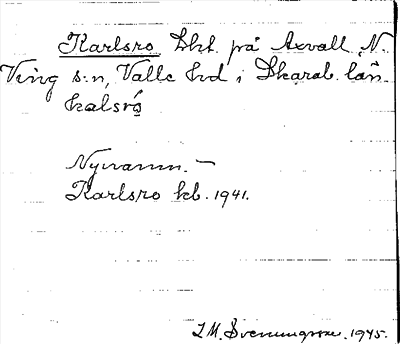 Karlsro, Lht. på Axvall, N.
Ving s:n, Valle hd i Skarab. län.
kalsró̱
Nynamn. —
Karlsro kb. 1941.
I.M. Svenningsson. 1945.